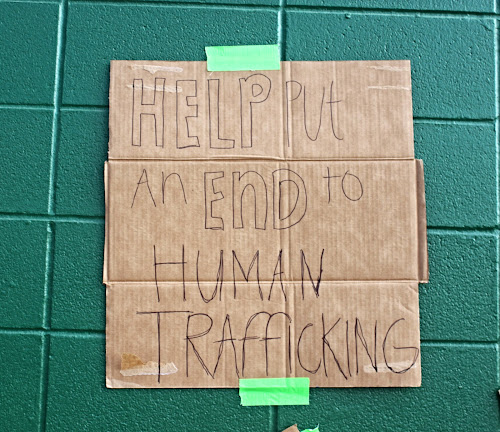 HELP PUt
AN END TO
HUMAN
TRAffICKING